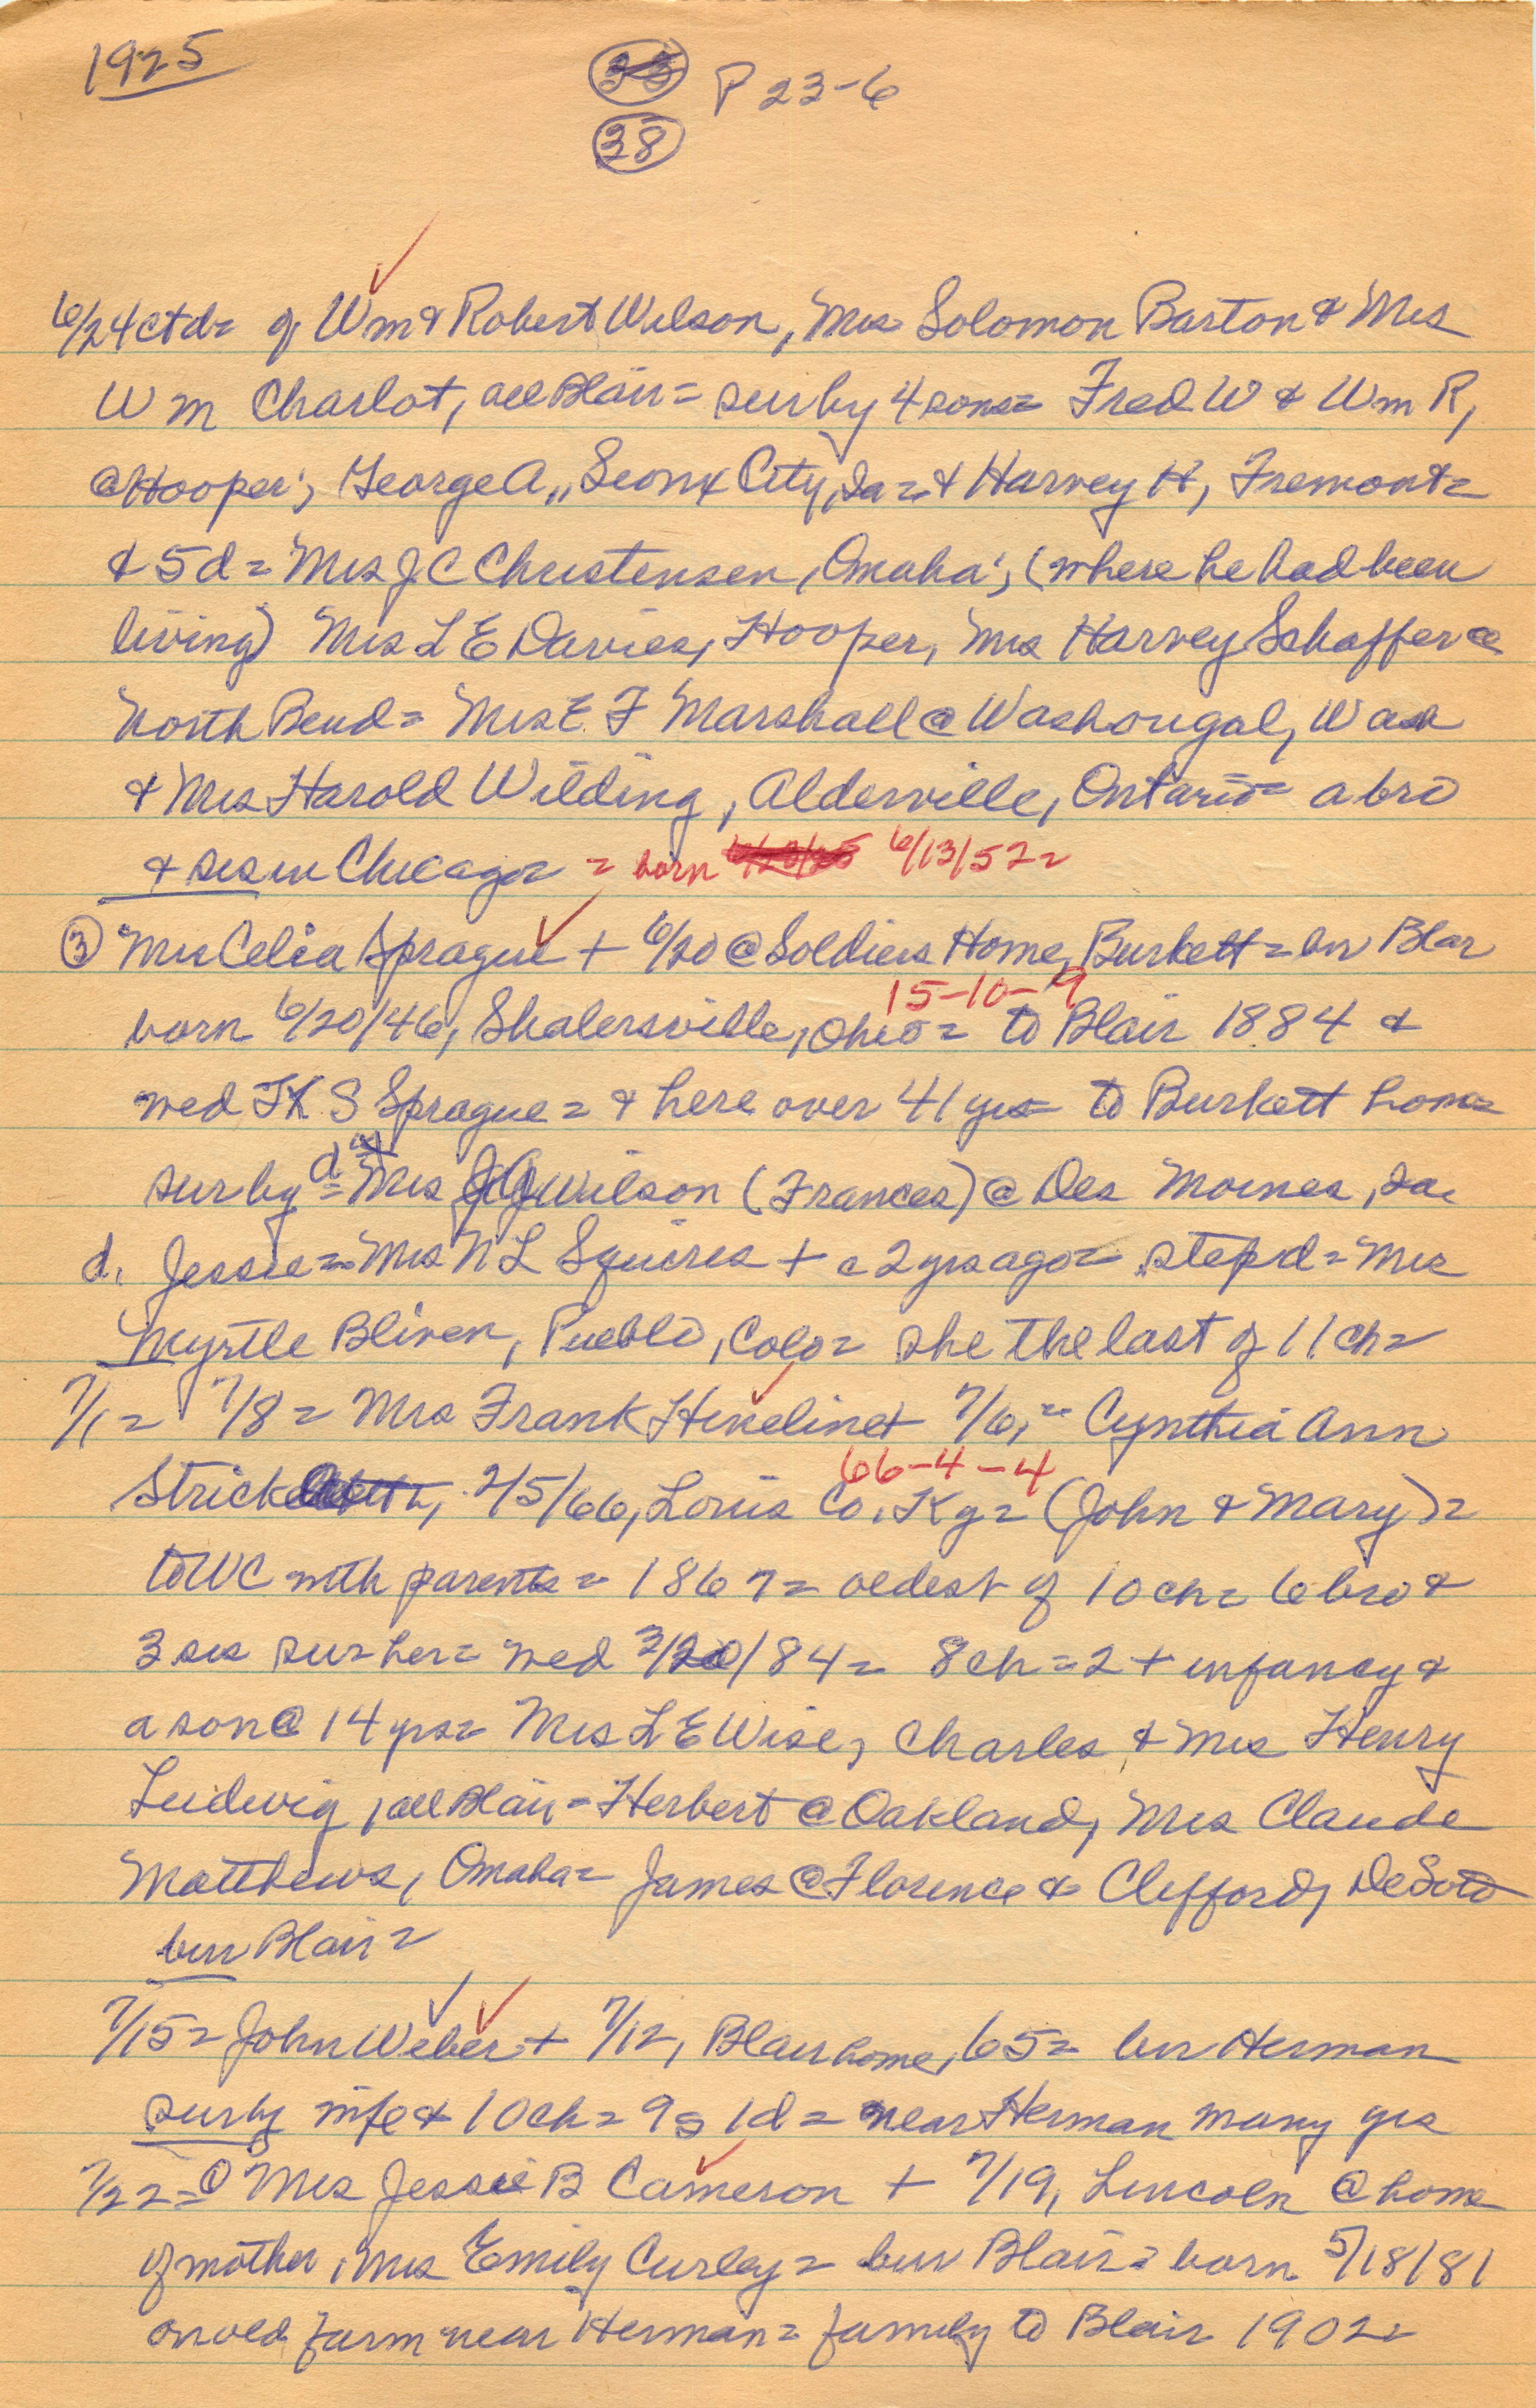 1925
38 P 23-6
38
6/24 ctd = of Wm & Robert Wilson, Mrs Solomon Barton & Mrs
Wm Charlot, all Blair = sur by 4 sons = Fred W & Wm R,
@ Hooper; George A,, Sioux City, Ia = & Harvey H, Fremont =
& 5 d = Mrs J C Christensen, Omaha; (where he had been
living) Mrs L E Davies, Hooper, Mrs Harvey Schaffer @
North Bend = Mrs E. F Marshall @ Washougal, Wash
& Mrs Harold Wilding, Alderville, Ontario = a bro
& sis in Chicago = = born 6/13/52 =
③ Mrs Celia Sprague + 6/20 @ Soldiers Home, Burkett = bur Blar
15-10-9
born 6/20/46, Shalersville, Ohio = to Blair 1884 &
wed S Sprague = & here over 41 yrs = to Burkett home
sur by d = Mrs Wilson (Frances) @ Des Moines, Ia.
d. Jessie = Mrs N L Squires + c 2 yrs ago = step d = Mrs
Myrtle Bliven, Pueblo, Colo = she the last of 11 ch =
7/1 = 7/8 = Mrs Frank Hineline + 7/6, = Cynthia Ann
66-4-4
Strick 2/5/66, Louis Co, Ky = (John & Mary) =
to WC with parents = 1867 = oldest of 10 ch = 6 bro &
3 sis sur her = wed 3/20/84 = 8 ch = 2 + infancy &
a son @ 14 yrs = Mrs L E Wise, Charles & Mrs Henry
Ludwig, all Blair = Herbert @ Oakland, Mrs Claude
Matthews, Omaha = James @ Florence & Clifford, DeSoto
bur Blair =
7/15 = John Weber + 7/12, Blair home, 65 = bur Herman
sur by wife & 10 ch = 9 s 1 d = near Herman many yrs
7/22 = ① Mrs Jessie B Cameron + 7/19, Lincoln @ home
of mother, Mrs Emily Curley = bur Blair = born 5/18/81
on old farm near Herman = family to Blair 1902 =